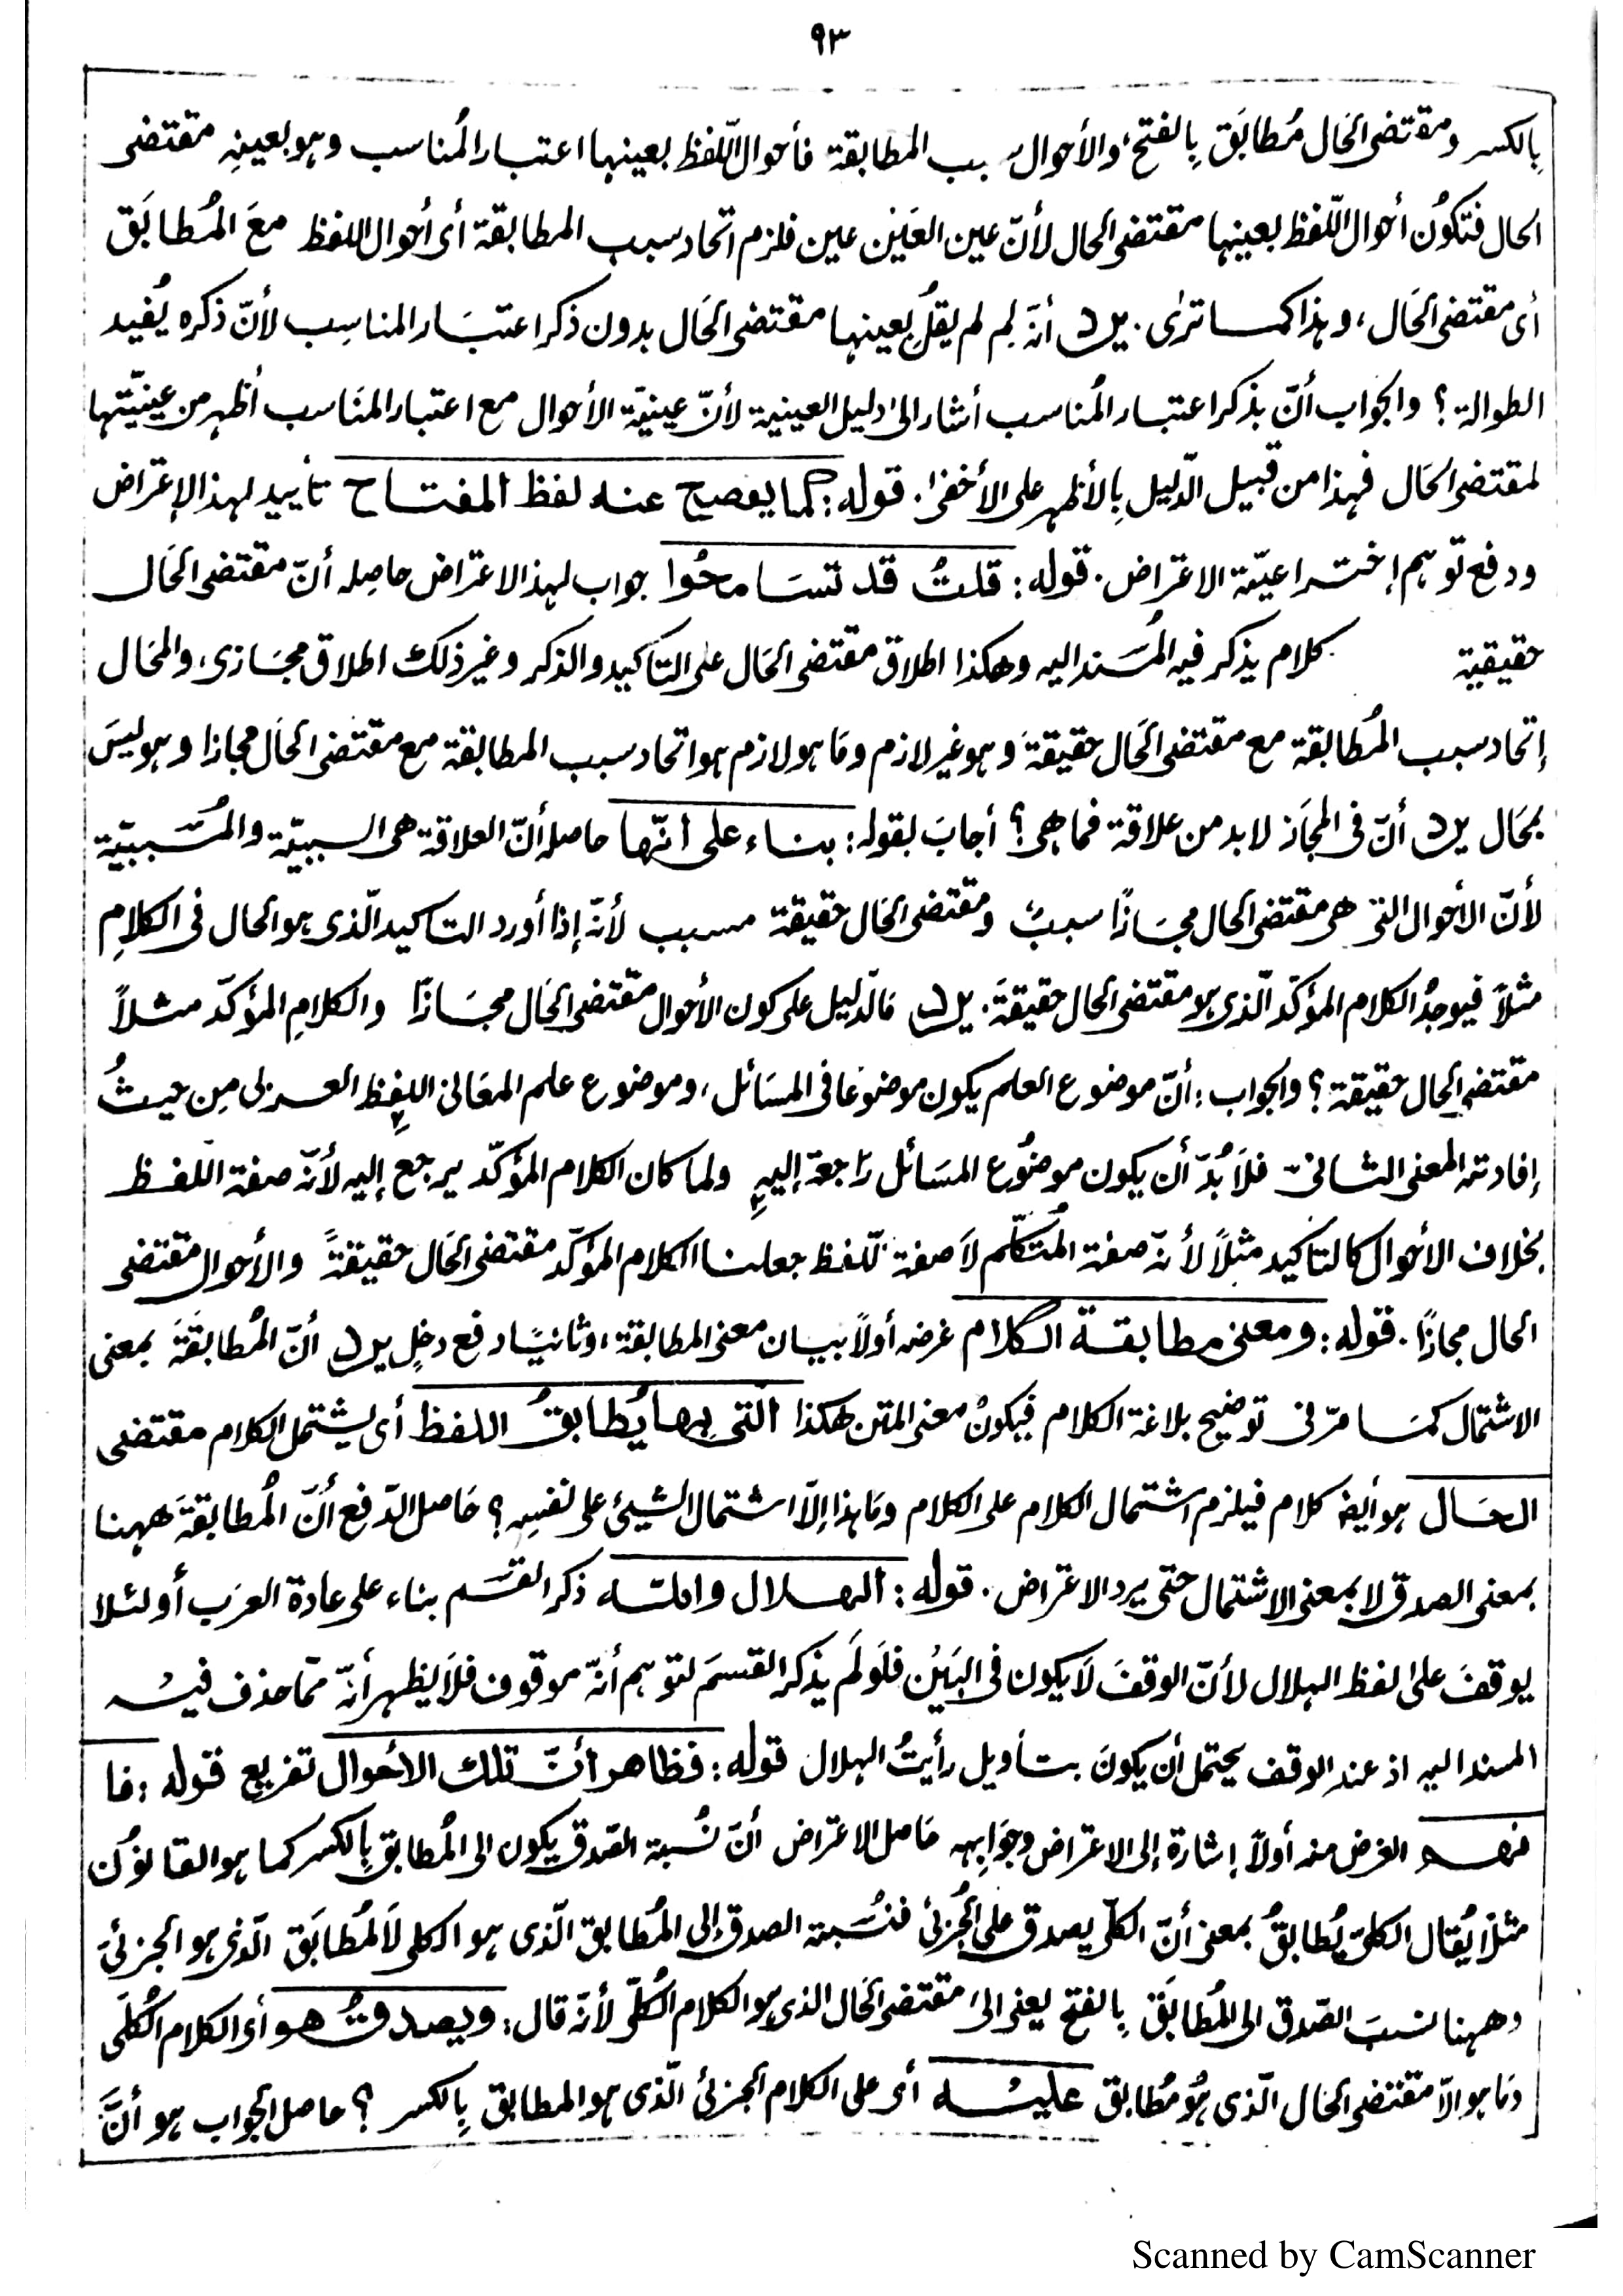 ٩٣
بِالكسر ومقتضى الحَال مُطابَق بِالفتح، والأحوال سبب المطابقة فأحوال اللّفظ بعينها اعتبار المُناسب وهو بعينِهِ مقتضى
الحال فتكونُ أحوال اللّفظ بعينها مقتضى الحال لأنّ عين العَين عين فلزم اتحاد سبب المطابقة أى أحوال اللفظ معَ المُطابَق
أى مقتضى الحَال، وهذا كما ترٰى. يرد أنّه لِم لم يقل بعينها مقتضى الحَال بدون ذكر اعتبَار المناسِب لأنّ ذكره يُفيد
الطوالة؟ والجواب أنّ بذكر اعتبار المُناسب أشار الىٰ دليل العينية لأنّ عينيّة الأحوال مع اعتبار المنَاسب أظهر من عينيّتها
لمقتضى الحَال فهذا من قبيل الدّليل بِالأظهر على الأخفىٰ. قوله: كما يفصح عنه لفظ المفتاح تأييد لهذا الإعتراض
ودفع توهم إختراعيّة الاعتراض. قوله: قلتُ قد تتسَامحُوا جواب لهذا الاعتراض حاصله أنّ مقتضى الحَال
حقيقية كلام يذكر فيه المُسَند اليه وهكذا اطلاق مقتضى الحَال على التأكيد والذكر وغير ذلك اطلاق مجَازى، والمحَال
إتحاد سبب المُطابقة مع مقتضى الحَال حقيقةً وهو غير لازم ومَا هو لازم هو اتحاد سبب المطابقة مع مقتضى الحَال مجازا وهو ليسَ
بمحَال يرد أنّ فى المجَاز لا بد من علاقة فما هى؟ أجابَ بقوله: بناء على انّها حاصله أنّ العلاقة هى السببيّة والمُسَببيّة
لأنّ الأحوال التى هى مقتضى الحال مجَازًا سببٌ ومقتضى الحَال حقيقة مسبب لأنّه إذا أورد التاكيد الّذى هو الحال فى الكلامِ
مثلاً فيوجدُ الكلام المؤكّد الّذى هو مقتضى الحال حقيقةً. يرد مَا الدّليل على كون الأحوال مقتضى الحَال مجَازًا والكلامِ المؤكّد مثلاً
مقتضى الحال حقيقة؟ والجواب: أنّ موضوع العلم يكون موضوعًا فى المسَائل، وموضوع علم المعَانى اللفظ العربى مِن حيثُ
إفادته المعنى الثانىّ فلاَ بُدّ أن يكون موضُوع المسَائل رَاجعة إليهِ ولما كان الكلام المؤكّد يرجع إليه لأنّه صفة اللفظ
بخلاف الأحوال كالتاكيد مثلاً لأنّه صفة المُتكلّم لاَ صفة للّفظ جعلنا الكلام المؤكّد مقتضى الحَال حقيقةً والأحوال مقتضى
الحال مجازًا. قوله: ومعنى مطابقة الكلام غرضه أولاً بيان معنى المطابقة، وثانيًا دفع دخلٍ يرد أنّ المُطابقَةَ بمعنى
الاشتمال كمَا مرّ فى توضيح بلاغة الكلام فيكونُ معنى المتن هكذا التى بِها يُطابقُ اللفظ أى يشتمل الكلام مقتضى
الحَال هو أيضًا كلام فيلزم اشتمال الكلام على الكلام ومَا هذا إلّا اشتمال الشيئ على نفسِهِ؟ حَاصل الدّفع أنّ المُطابقةَ ههنا
بمعنى الصدق لا بمعنى الاشتمال حتى يرد الاعتراض. قوله: الهلال والله ذكر القسَم بناء على عادة العرَب أو لئلا
يوقفَ على لفظ الهلال لأنّ الوقفَ لاَ يكون فى البَين فلَو لَم يذكر القسَمَ لتوهم أنّه موقوف فلاَ يظهر أنّه ممّا حذف فيه
المسند اليه اذ عند الوقف يحتمل أن يكونَ بتأويل رأيتُ الهلال قوله: فظاهر أنّ تلك الأحوال تفريع قوله: فا
فهم الغرض منه أولاً إشارة إلى الاعتراض وجَوابِه حَاصل الاعتراض أنّ نُسبة الصّدق يكون الى المُطابق بِالكسر كما هو القانوُن
مثلاً يُقال الكلىّ يُطابقُ بمعنى أنّ الكلّى يصدق على الجُزئى فنسُبة الصدق إلى المُطابق الّذى هو الكلى لاَ لمُطابَق الّذى هو الجزئىّ
وههنا نسبَ الصّدق الى المُطابَق بِالفتح يعنى الىٰ مقتضى الحَال الذى هو الكلام الكُلّى لأنّه قال: ويصدقُ هو أى الكلام الكُلّى
ومَا هو الاّ مقتضى الحَال الّذى هُوَ مُطابق عليه أى على الكلام الجزئى الّذى هو المطابق بِالكسر؟ حاصل الجواب هو أنّ
Scanned by CamScanner